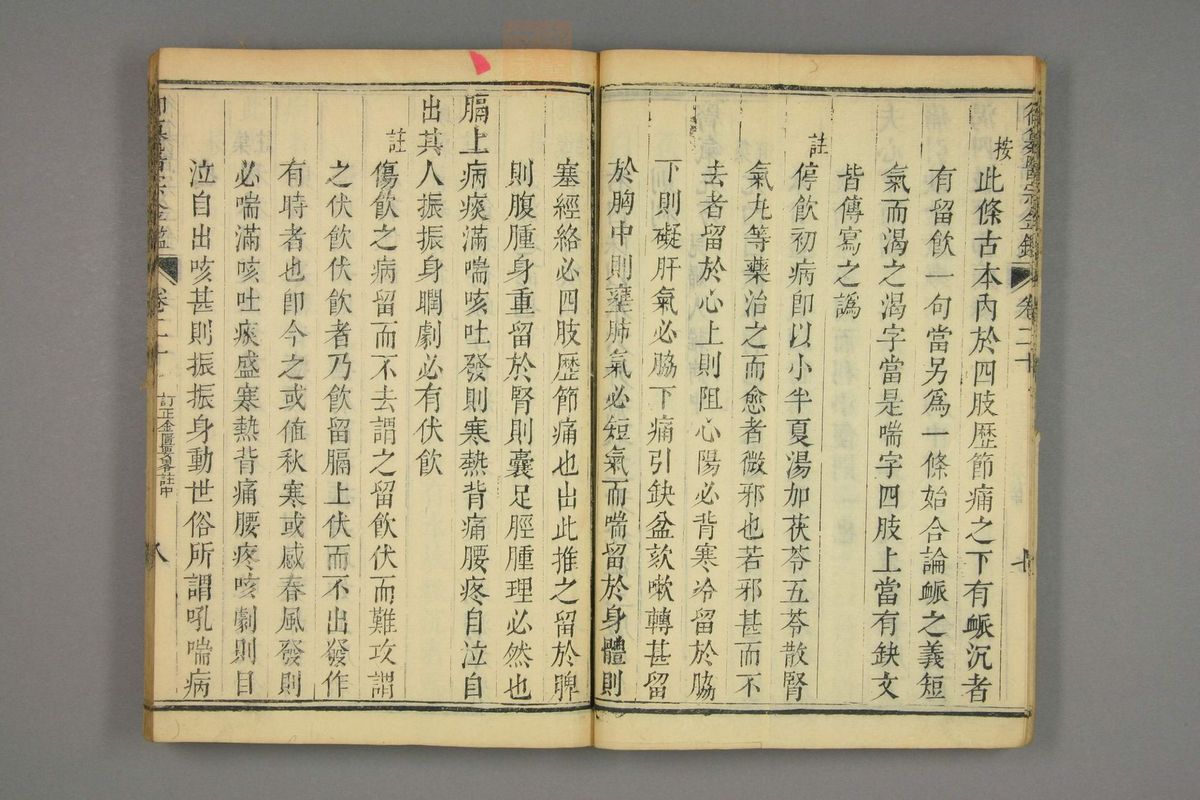 御纂醫宗金鑑 卷二十 七
按
此條古本內於四肢歴節痛之下有衇沉者
有留飲一句當另爲一條始合論衇之義短
氣而渴之渴字當是喘字四肢上當有鈌文
皆傳寫之譌
註
停飲初病卽以小半夏湯加茯苓五苓散腎
氣九等藥治之而愈者微邪也若邪甚而不
去者留於心上則阻心陽必背寒冷留於脇
下則礙肝氣必脇下痛引鈌盆欬嗽轉甚留
於胸中則壅肺氣必短氣而喘留於身體則
塞經絡必四肢歴節痛也出此推之留於脾
則腹腫身重留於腎則囊足脛腫理必然也
膈上病痰滿喘咳吐發則寒熱背痛腰疼目泣自
出其人振振身瞤劇必有伏飲
註
傷飲之病留而不去謂之留飲伏而難攻謂
之伏飲伏飲者乃飲留膈上伏而不出發作
有時者也卽今之或値秋寒或感春風發則
必喘滿咳吐痰盛寒熱背痛腰疼咳劇則目
泣自出咳甚則振振身動世俗所謂吼喘病
御纂醫宗金鑑 卷二十 訂正金匱要畧註中 八